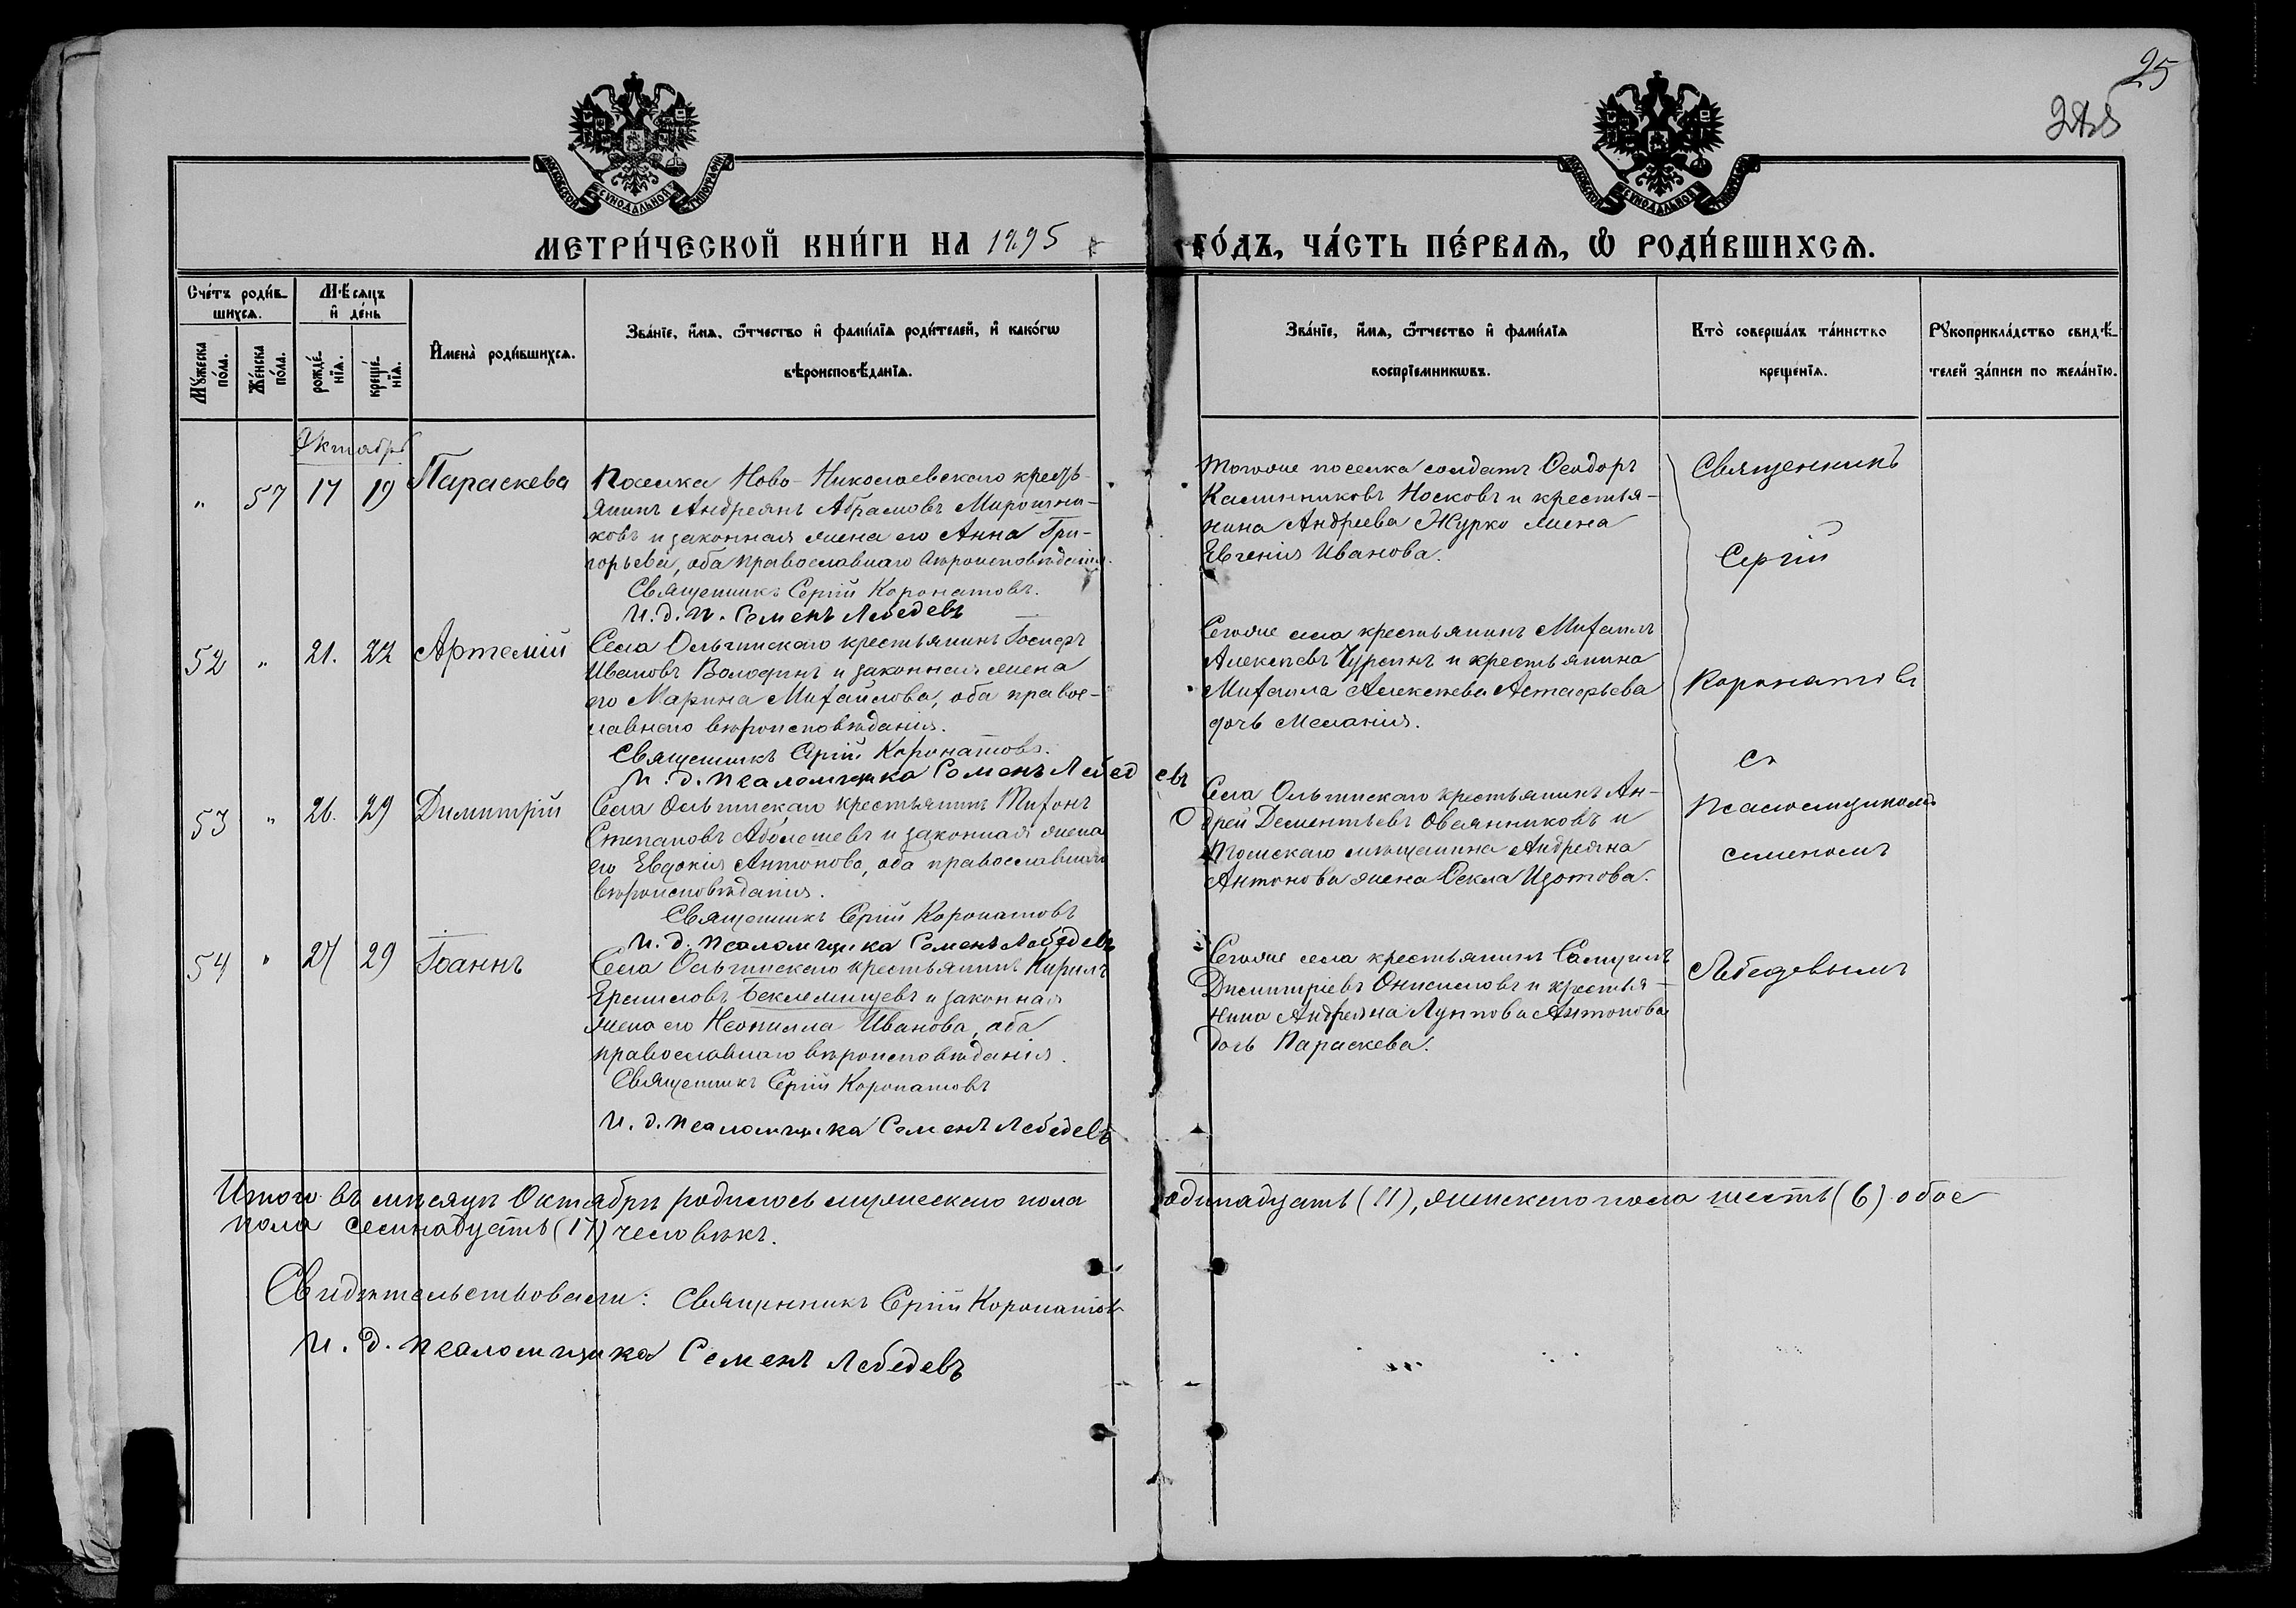 25
МОСКОВСКОЙ СѴНОДАЛЬНОЙ ТИПОГРАФІИ
МОСКОВСКОЙ СѴНОДАЛЬНОЙ ТИПОГРАФІИ
МЕТРИ́ЧЕСКОЙ КНИ́ГИ НА 1895
ГО́ДЪ, ЧА́СТЬ ПЕ́РВАѦ, Ѽ РОДИ́ВШИХСѦ.
Счéтъ роди́в-
шихсѧ.
Мѣ́сѧцъ
и҆ дéнь
Мꙋ́жеска
пóла.
Жéнска
пóла.
рождé-
нїѧ.
крещé-
нїѧ.
И҆менà роди́вшихсѧ.
Звáнїе, и҆́мѧ, ѻ҆́тчество и҆ фами́лїѧ роди́телей, и҆ какóгѡ
вѣроисповѣ́данїѧ.
Звáнїе, и҆́мѧ, ѻ҆́тчество и҆ фами́лїѧ
воспрїе́мникѡвъ.
Ктò совершáлъ тáинство
крещéнїѧ.
Рꙋкоприклáдство свидѣ́-
телей зáписи по желáнїю.
Октябрь
" 57 17 19 Параскева
Поселка Ново-Николаевскаго кресть-
янинъ Андреянъ Абрамовъ Мирошни-
ковъ и законная жена его Анна Гри-
горьева, оба православнаго вѣроисповѣданія.
Священникъ Сергій Коронатовъ.
И. д. п. Семенъ Лебедевъ
Тогоже поселка солдатъ Ѳеодоръ
Калинниковъ Носковъ и крестья-
нина Андреева Журко жена
Евгенія Иванова.
Священникъ
Сергій
52 " 21. 22 Артемій
Села Ольгинскаго крестьянинъ Іосифъ
Ивановъ Володинъ и законная жена
его Марина Михайлова, оба право-
славнаго вѣроисповѣданія.
Священникъ Сергій Коронатовъ.
И. д. псаломщика Семенъ Лебедевъ
Сегоже села крестьянинъ Михаилъ
Алексѣевъ Чурсинъ и крестьянина
Михаила Алексѣева Астафьева
дочь Меланія.
Коронатовъ
съ
53 " 26. 29 Димитрій
Села Ольгинскаго крестьянинъ
Степановъ и законная жена
его Евдокія Антонова, оба православнаго
вѣроисповѣданія.
Священникъ Сергій Коронатовъ
И. д. псаломщика Семенъ Лебедевъ
Села Ольгинскаго крестьянинъ Ан-
дрей Дементьевъ Овсянниковъ и
мѣщанина Андреяна
Антонова жена Ѳекла Изотова.
псаломщикомъ
Семеномъ
54 " 27 29 Іоаннъ
Села Ольгинскаго крестьянинъ Кирилъ
Ермиловъ Беклемищевъ и законная
жена его Неонилла Иванова, оба
православнаго вѣроисповѣданія.
Священникъ Сергій Коронатовъ
И. д. псаломщика Семенъ Лебедевъ
Сегоже села крестьянинъ Самуилъ
Димитріевъ Онисимовъ и крестья-
нина Андреяна Антонова
дочь Параскева.
Лебедевымъ
Итого въ мѣсяцѣ Октябрѣ родилось мужескаго пола одинадцать (11), женскаго пола шесть (6) обое
пола семнадцать (17) человѣкъ.
Свидѣтельствовали: Священникъ Сергій Коронатовъ
И. д. псаломщика Семенъ Лебедевъ